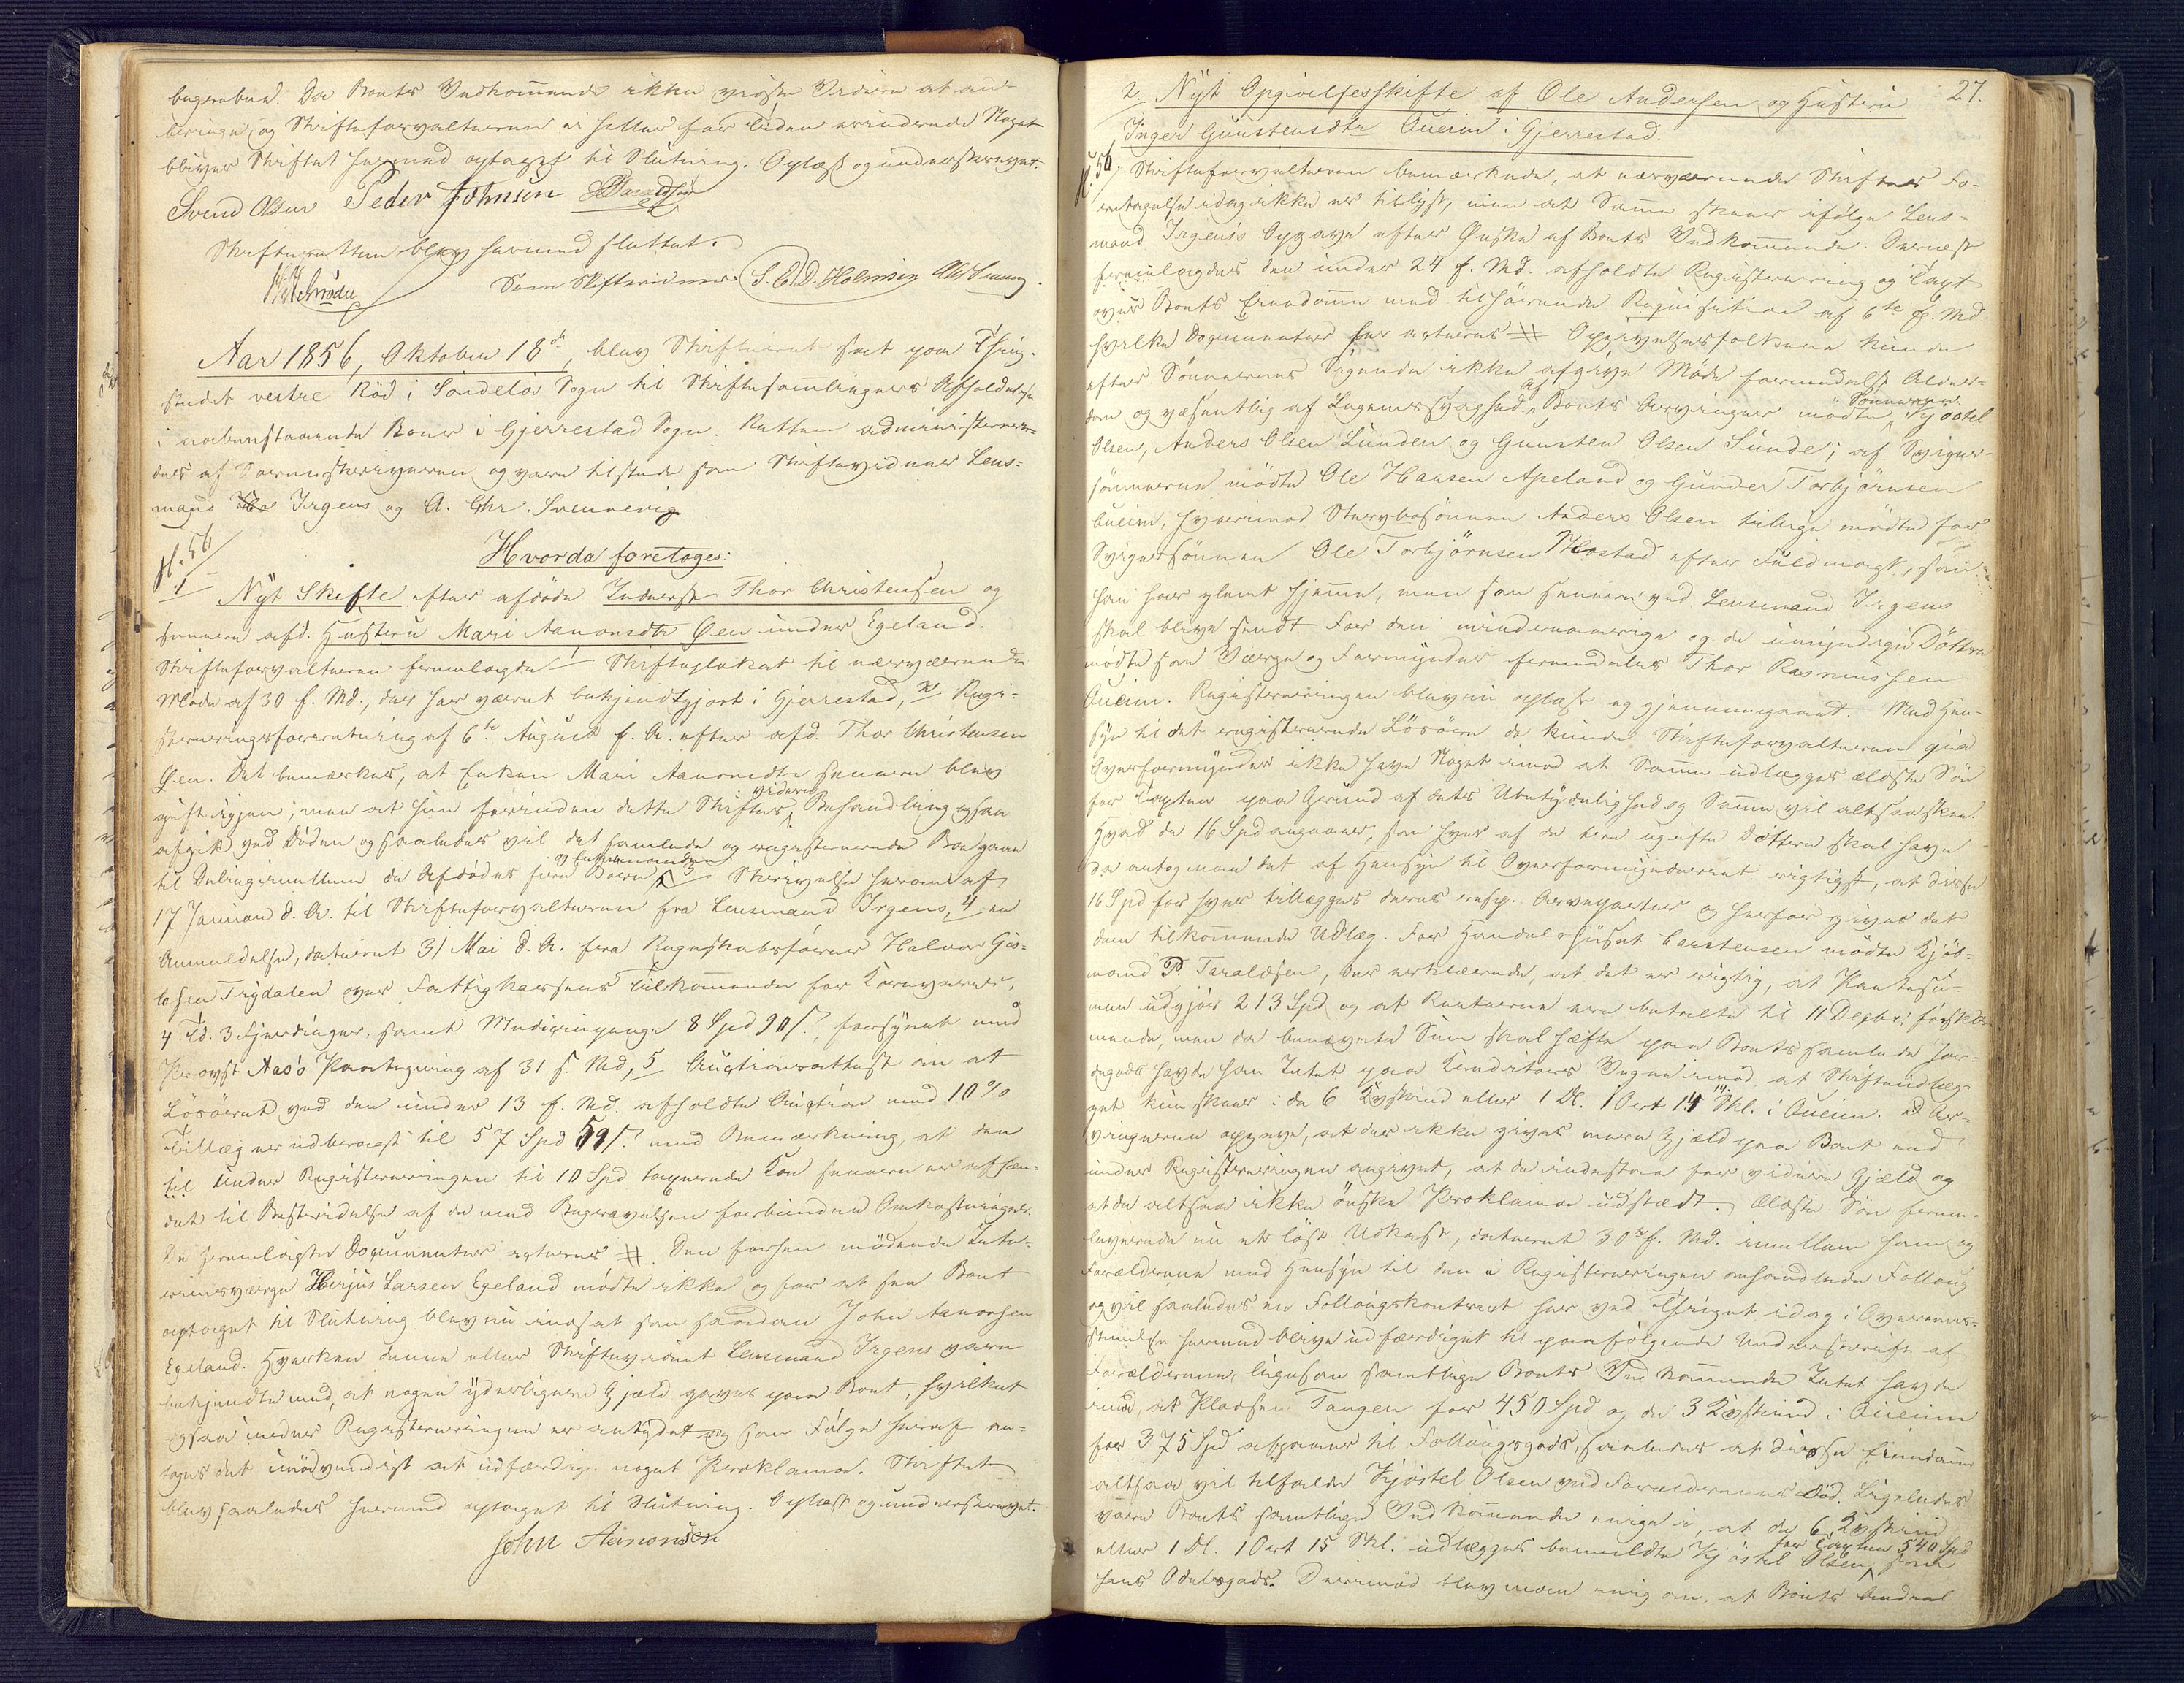 begravelsen. Da Boets Vedkommende ikke vidste Videre at an-
beringe og Skifteforvalteren ei heller for Tiden erindrede Noget
bliver Skiftet hermed optaget til Slutning. Oplæst og underskrevet.
Svend Olsen Peder Johnsen
Skifteretten blev hermed sluttet.
Schrøder Som Skiftevidner S. C. D. Holmsen
Aar 1856, Oktober 18de, blev Skifteret sat paa Thing-
stedet vestre Röd i Söndelös Sogn til Skiftesamlingers Afholdelse
i nedenstaaende Boer i Gjerrestad Sogn. Retten administrere-
des af Sorenskriveren og vare tilstede som Skiftevidner Lens-
mand Irgens og A. Chr. Svennevig
Hvorda foretoges:
№ 56
1 Nyt Skifte efter afdöde Inderst Thor Christensen og
senere afd. Hustru Mari Aanonsdtr Øen under Egeland.
Skifteforvalteren fremlagde 1 Skifteplakat til nærværende
Möde af 30 f. Md., der har været bekjendtgjort i Gjerrestad, 2 Regi-
streringsforretning af 6te August f. A. efter afd. Thor Christensen
Øen. Det bemærkes, at Enken Mari Aanonsdtr senere blev
gift igjen; men at hun forinden dette Skiftes videre Behandling ogsaa
afgik ved Döden og saaledes vil det samlede og registrerede Bo gaae
til Deling imellem de Afdödes fem Börn og Enkemanden, 3 Skrivelse herom af
17 Januar d. A. til Skifteforvalteren fra Lensmand Irgens, 4 en
Anmeldelse, dateret 31 Mai d. A. fra Regnskabsförer Halvor Gjer-
lofsen Trydalen over Fattigkassens Tilkommende for Kornvarer,
4 Td. 3 Fjerdinger, samt Medicinpenge 8 Spd 90 s., forsynet med
Provst Aas's Paategning af 31 s. Md, 5 Auctionsattest om at
Lösöret ved den under 13 f. Md. afholdte Auction med 10 %
Tillæg er udbragt til 57 Spd 59 s. med Bemærkning, at den
til under Registreringen til 10 Spd taxerede Ko senere er afhæn-
det til Bestridelse af de med Begravelsen forbundne Omkostninger.
De fremlagte Documenter acteres #. Den forhen mödende Inte-
rimsværge Terjus Larsen Egeland mödte ikke og for at see Boet
optaget til Slutning blev nu indsat som saadan John Aanonsen
Egeland. Hverken denne eller Skiftevidnet Lensmand Irgens vare
bekjendte med, at nogen yderligere Gjæld haves paa Boet, hvilket
ogsaa under Registreringen er antydet og som Fölge heraf an-
toges det unödvendigt at udfærdige noget Proklama. Skiftet
blev saaledes hermed optaget til Slutning. Oplæst og underskrevet.
John Aanonsen
27.
2. Nyt Opgivelsesskifte af Ole Andersen og Hustru
Inger Gunstensdtr Aueim i Gjerrestad.
№ 56. Skifteforvalteren bemærkede, at nærværende Skiftes Fo-
retagelse idag ikke er tillyst, men at Samme skeer ifölge Lens-
mand Irgens's Opgave efter Önske af Boets Vedkommende. Dernæst
fremlagdes den under 24 f. Md. afholdte Registrering og Taxt
over Boets Eiendomme med tilhörende Requisition af 6te f. Md
hvilke Documenter her acteres # Opgivelsesfolkene kunde
efter Sönnernes Sigende ikke afgive Möde formedelst Alder-
dom og væsentlig af Legemssvaghed. Af Boets Arvinger mödte Sönnerne Kjöstel
Olsen, Anders Olsen Lunden og Gunsten Olsen Sunde; af Sviger-
sönnerne mödte Ole Hansen Apeland og Gunder Torbjörnsen
Aueim, hvorimod Stervbosönnen Anders Olsen tillige mödte for
Svigersönnen Ole Torbjörnsen Mostad efter Fuldmagt, som
han har glemt hjemme, men som senere ved Lensmand Irgens
skal blive sendt. For den mindreaarige og de umyndige Döttre
mödte som Værge og Formynder fremdeles Thor Rasmussen
Aueim. Registreringen blev nu oplæst og gjennemgaaet. Med Hen-
syn til det registrerede Lösöre da kunde Skifteforvalteren qua
Overformynder ikke have Noget imod at Samme udlægges ældste Sön
for Taxten paa Grund af dets Ubetydelighed og Samme vil altsaa skee.
Hvad de 16 Spd angaaer, som hver af de tvre ugifte Döttre skal have
da antog man det af Hensyn til Overformynderiet rigtigst, at disse
16 Spd for hver tillægges deres resp. Arveparter og herfor gives det
dem tilkommende Udlæg. For Handelshuset Carstensen mödte Kjöb-
mand P. Taraldsen, der erklærede, at det er rigtig, at Pantesum-
men udgjör 213 Spd og at Renterne ere betalte til 11 Decbr. förstkom-
mende, men da benævnte Sum skal hæfte paa Boets samlede Jor-
degods havde han Intet paa Kreditors Vegne imod, at Skifteudlæg-
get kun skeer i de 6 Kvskind eller 1 Dl. 1 Ort 14 Skl. i Aueim. Ar-
vingerne opgave, at der ikke gives mere Gjæld paa Boet end
under Registreringen angivet, at de indestaa for videre Gjæld og
at de altsaa ikke önske Proklama udstædt. Ældste Sön frem-
leverede nu et löst Udkast, dateret 30te f. Md. imellem ham og
Forældrene med Hensyn til den i Registreringen omhandlede Follaug
og vil saaledes en Follaugskontract her ved Thinget idag i Overens-
stemmelse hermed blive udfærdiget til paafölgende Underskrift af
Forældrene, ligesom samtlige Boets Vedkommende Intet havde
imod, at Pladsen Tangen for 450 Spd og de 3 Kvskind i Aueim
for 375 Spd afgaaer til Follaugsgods, saaledes at disse Eiendomme
altsaa vil tilfalde Kjöstel Olsen ved Forældrenes Död. Ligeledes
vare Boets samtlige Vedkommende enige i, at de 6 Kvskind
eller 1 Dl. 1 Ort 15 Skl. udlægges bemeldte Kjöstel Olsen for Taxten 540 Spd som
hans Odelsgods. Derimod blev man enig om, at Boets Andeel